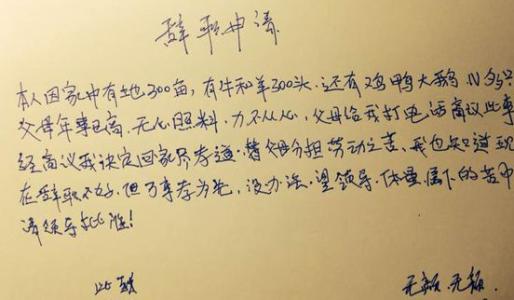 辞职申请
本人因家中有土地300亩,有牛和羊300头,还有鸡鸭大鹅
父母年事已高,无心照料,力不从心,父母给我打电话商议此事
经商议我决定回家尽孝道,替父母分担劳动之苦,我也知道现
在辞职不好,但百事孝为先,没办法,望领导,体量属下的苦中
请领导批准!
此致